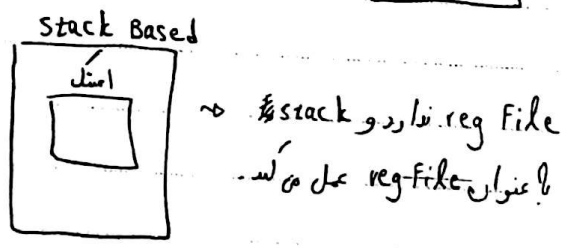 Stack Based
استک
reg File ندارد و stack
با عنوان reg-File عمل می‌کند.